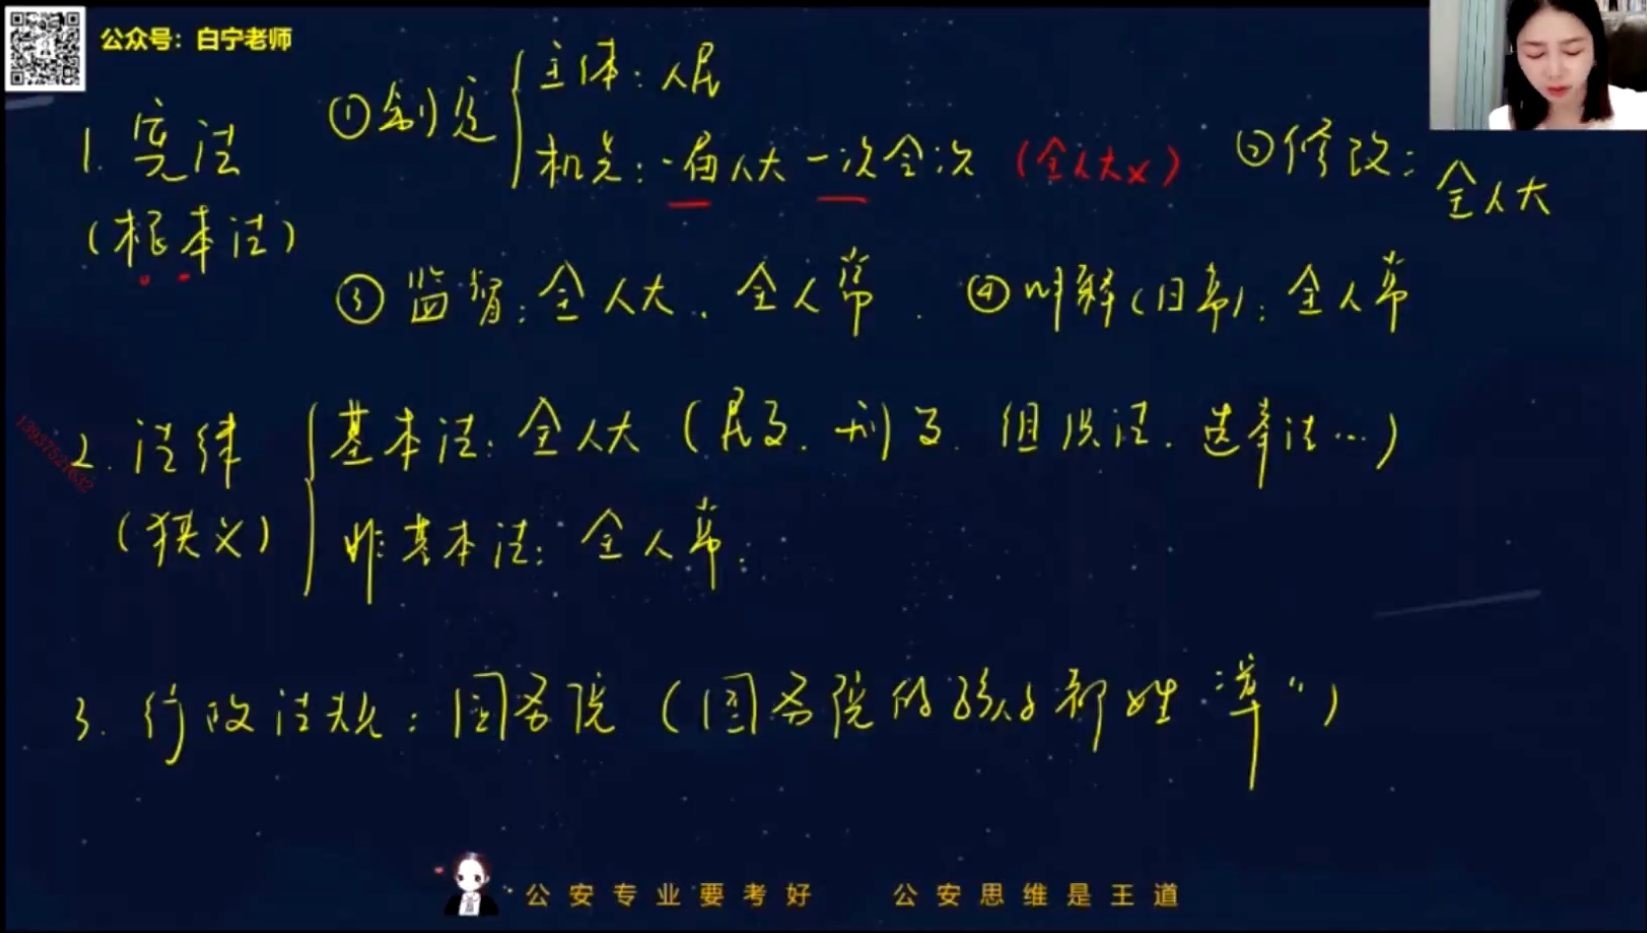 公众号：白宁老师
1. 宪法
(根本法)
①制定
主体：人民
机关：一届人大一次会议 (全人大×)
②修改：全人大
③监督：全人大、全人常.
④解释(日常)：全人常
2. 法律
(狭义)
基本法：全人大 (民法、刑法、组织法、选举法…)
非基本法：全人常;
3. 行政法规：国务院 (国务院的孩子都姓“条”)
公安专业要考好 公安思维是王道